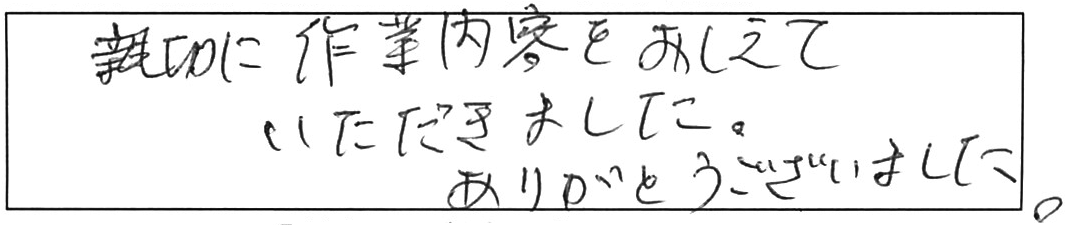 親切に作業内容をおしえて
いただきました。
ありがとうございました。